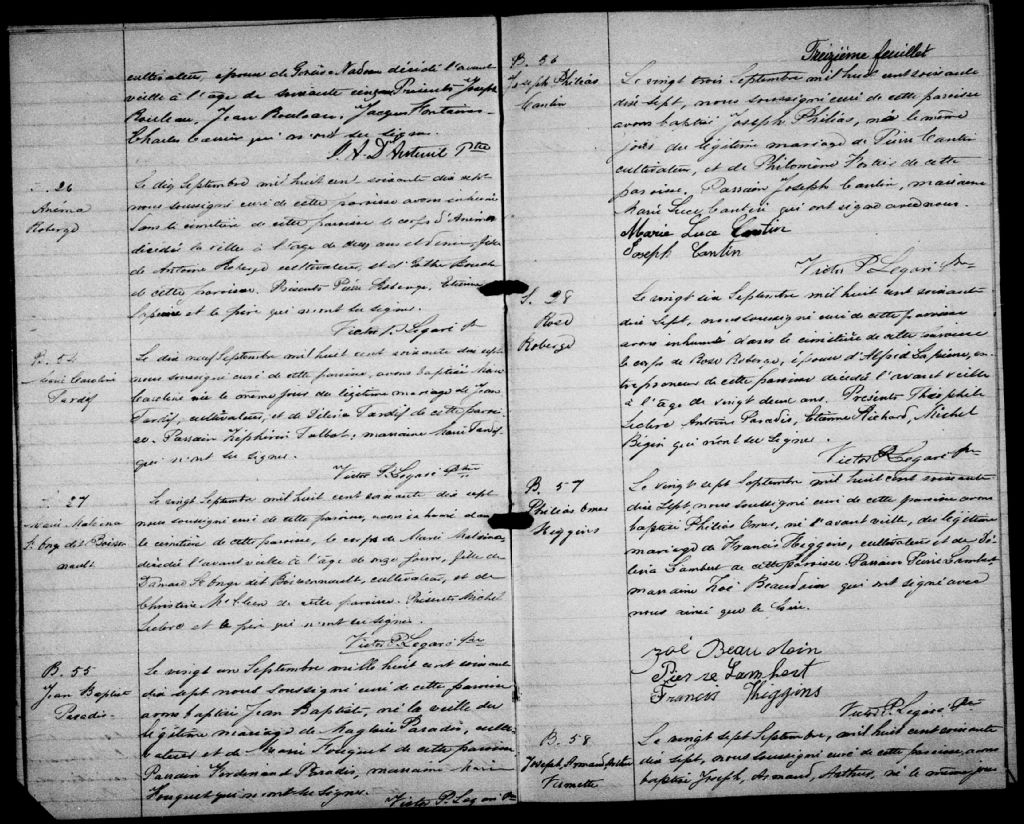 cultivateur, époux de décédé l'avant
veille à l'âge de soixante cinq ans Présents Joseph
Rouleau, Jean Rouleau, Jacques Fontaine
Charles qui n'ont su signer.
J. A. D'Auteuil Ptre
S. 26
Anéma
Roberge
Le dix Septembre mil huit cent soixante dix sept
nous soussigné curé de cette paroisse avons inhumé
dans le cimetière de cette paroisse le corps d'Anéma
décédée la veille à l'âge de deux ans et demi, fille
de Antoine Roberge cultivateur, et d'Esther
de cette paroisse. Présents Pierre Roberge, Etienne
Lapierre et le père qui n'ont su signer.
Victor P. Legaré Ptre
B. 54
Marie Caroline
Tardif
Le dix neuf Septembre mil huit cent soixante dix sept
nous soussigné curé de cette paroisse, avons baptisé Marie
Caroline née le même jour du légitime mariage de Jean
Tardif, cultivateur, et de Délia Tardif de cette parois-
se. Parrain Zéphirin Talbot, marraine Marie Tardif
qui n'ont su signer.
Victor P. Legaré Ptre
S. 27
Marie Malvina
St Onge dit Boisson
nault
Le vingt Septembre mil huit cent soixante dix sept
nous soussigné curé de cette paroisse, avons inhumé dans
le cimetière de cette paroisse, le corps de Marie Malvina
décédée l'avant veille à l'âge de onze jours, fille de
Damase St Onge dit Boissonnault, cultivateur, et de
Christine McClean de cette paroisse. Présents Michel
Leclerc et le père qui n'ont su signer.
Victor P. Legaré Ptre
B. 55
Jean Baptiste
Paradis
Le vingt un Septembre mille huit cent soixante
dix sept nous soussigné curé de cette paroisse
avons baptisé Jean Baptiste, né la veille du
légitime mariage de Magloire Paradis, culti-
vateur et de Marie Fouquet de cette paroisse
Parrain Ferdinand Paradis, marraine Marie
Fouquet qui n'ont su signer.
Victor P. Legaré Ptre
Treizième feuillet
B. 56
Joseph Philéas
Cantin
Le vingt trois Septembre mil huit cent soixante
dix sept, nous soussigné curé de cette paroisse
avons baptisé Joseph Philéas, né le même
jour du légitime mariage de Pierre Cantin
cultivateur, et de Philomène Fortier de cette
paroisse. Parrain Joseph Cantin, marraine
Marie Luce Cantin qui ont signé avec nous.
Marie Luce Cantin
Joseph Cantin
Victor P. Legaré Ptre
S. 28
Rose
Roberge
Le vingt six Septembre mil huit cent soixante
dix sept, nous soussigné curé de cette paroisse
avons inhumé dans le cimetière de cette paroisse
le corps de Rose Roberge, épouse d'Alfred Lapierre, en-
trepreneur de cette paroisse décédée l'avant veille
à l'âge de vingt deux ans. Présents Théophile
Leclerc Antoine Paradis, Etienne Richard, Michel
Bégin qui n'ont su signer.
Victor P. Legaré Ptre
B. 57
Philéas Omer
Higgins
Le vingt sept Septembre mil huit cent soixante
dix sept nous soussigné curé de cette paroisse avons
baptisé Philéas Omer, né l'avant veille, du légitime
mariage de Francis Higgins, cultivateur et de Dé-
lina Lambert de cette paroisse. Parrain Pierre Lambert
marraine Zoé Beaudoin qui ont signé avec
nous ainsi que le père.
Zoé Beaudoin
Pierre Lambert
Francis Higgins
Victor P. Legaré Ptre
B. 58
Joseph, Armand, Arthur
Vermette
Le vingt sept Septembre, mil huit cent soixante
dix sept, nous soussigné curé de cette paroisse, avons
baptisé Joseph, Armand, Arthur, né le même jour